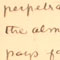 perpetra
the alm
pays fo